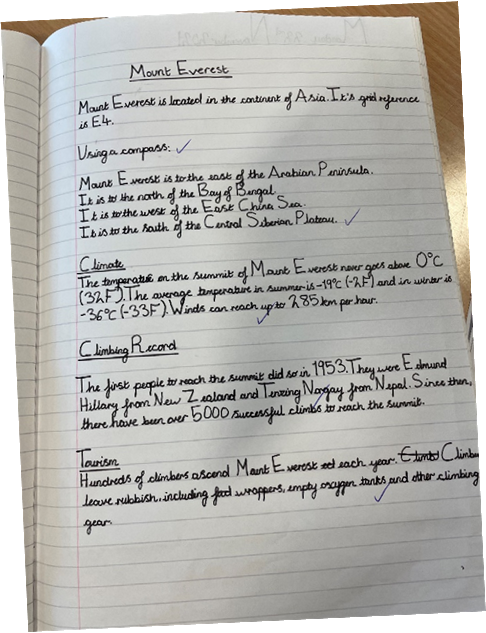 Mount Everest
Mount Everest is located in the continent of Asia. It's grid reference
is E4.
Using a compass:
Mount Everest is to the east of the Arabian Peninsula.
It is to the north of the Bay of Bengal
It is to the west of the East China Sea.
It is to the south of the Central Siberian Plateau.
Climate
The temperature on the summit of Mount Everest never goes above 0°C
(32F). The average temperature in summer is -19°C (-2F) and in winter is
-36°C (-33F). Winds can reach up to 285 km per hour.
Climbing Record
The first people to reach the summit did so in 1953. They were Edmund
Hillary from New Zealand and Tenzing Norgay from Nepal. Since then,
there have been over 5000 successful climbs to reach the summit.
Tourism
Hundreds of climbers ascend Mount Everest each year. Climbe
leave rubbish, including food wrappers, empty oxygen tanks and other climbing
gear.